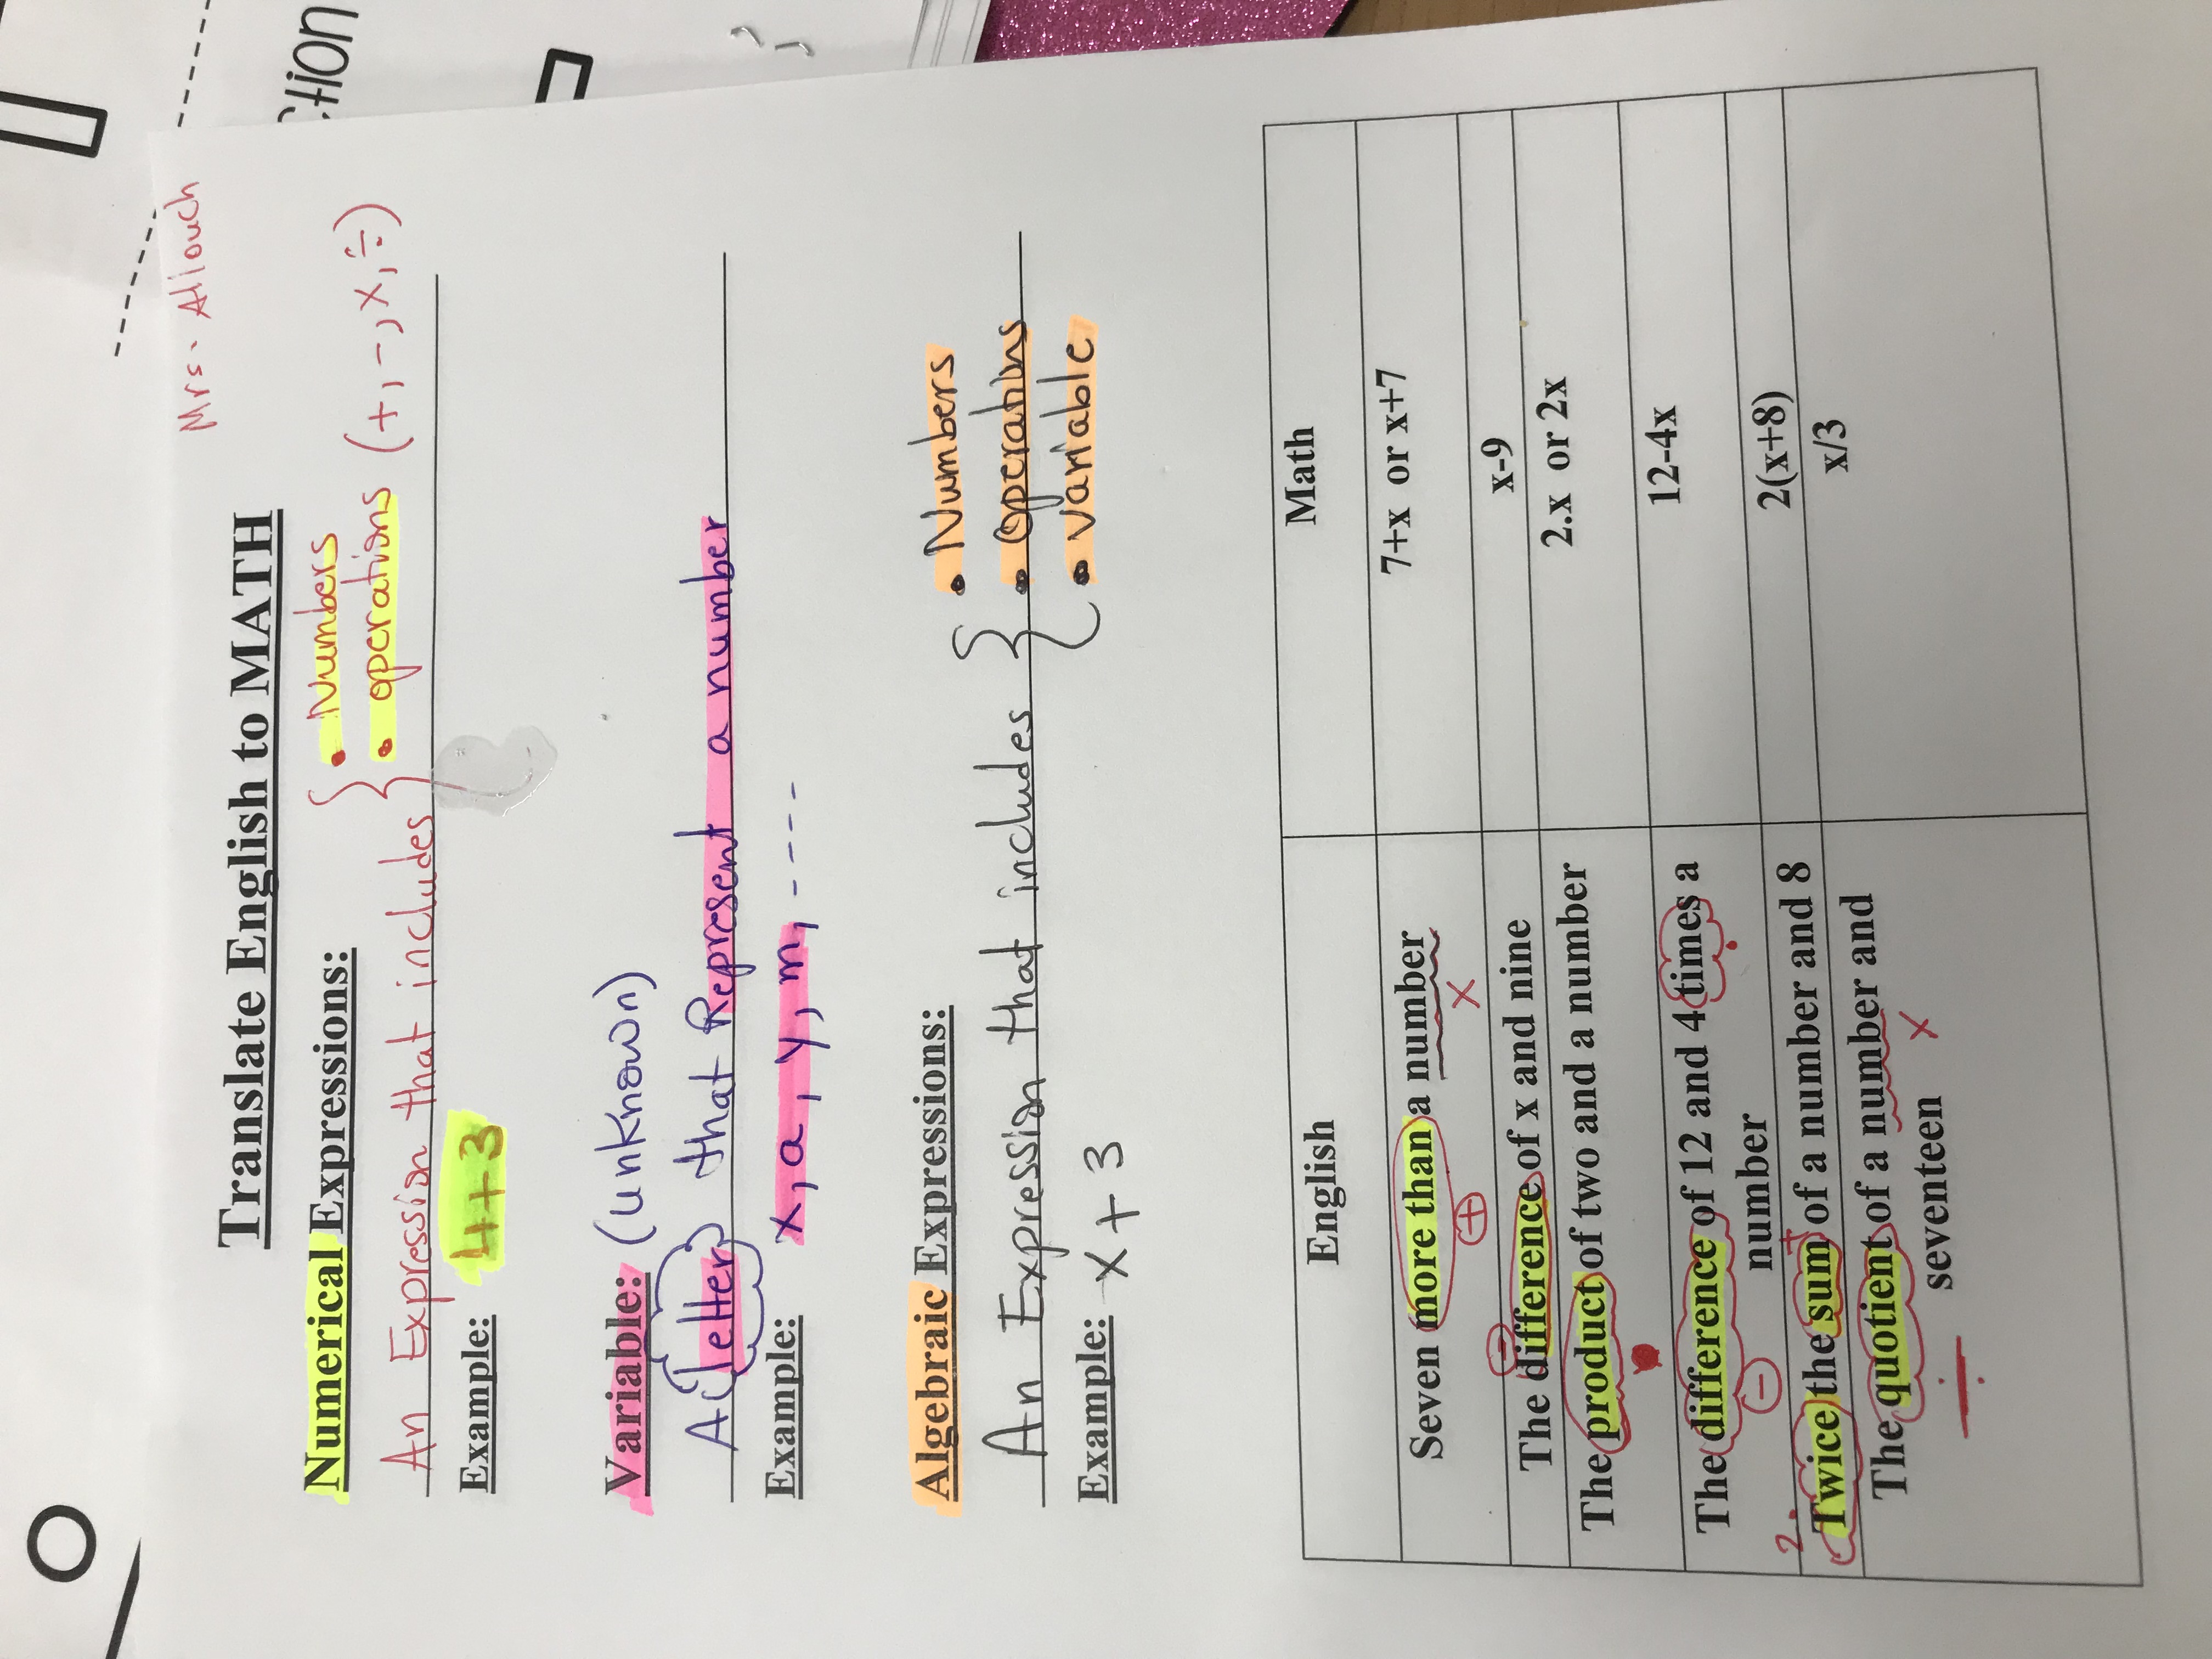 ction
Mrs. Allouch
Translate English to MATH
Numerical Expressions:
• Numbers
• operations (+, -, x, ÷)
An Expression that includes
Example: 4+3
Variable: (unknown)
A letter that Represent a number
Example: x, a, y, m, ----
Algebraic Expressions:
• Numbers
An Expression that includes • operations
• variable
Example: x + 3
English Math
Seven more than a number 7+x or x+7
+ x
-
The difference of x and nine x-9
The product of two and a number 2.x or 2x
•
The difference of 12 and 4 times a 12-4x
number
- •
2. +
Twice the sum of a number and 8 2(x+8)
The quotient of a number and x/3
seventeen x
÷